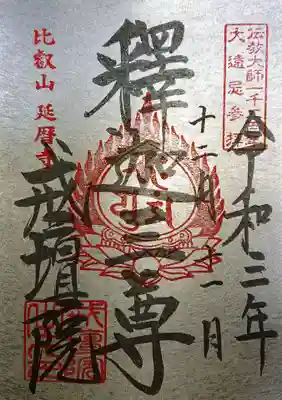 伝教大師一千二百年
大遠忌参拝
令和三年
十二月十一日
釋迦三尊
比叡山 延暦寺
戒壇院